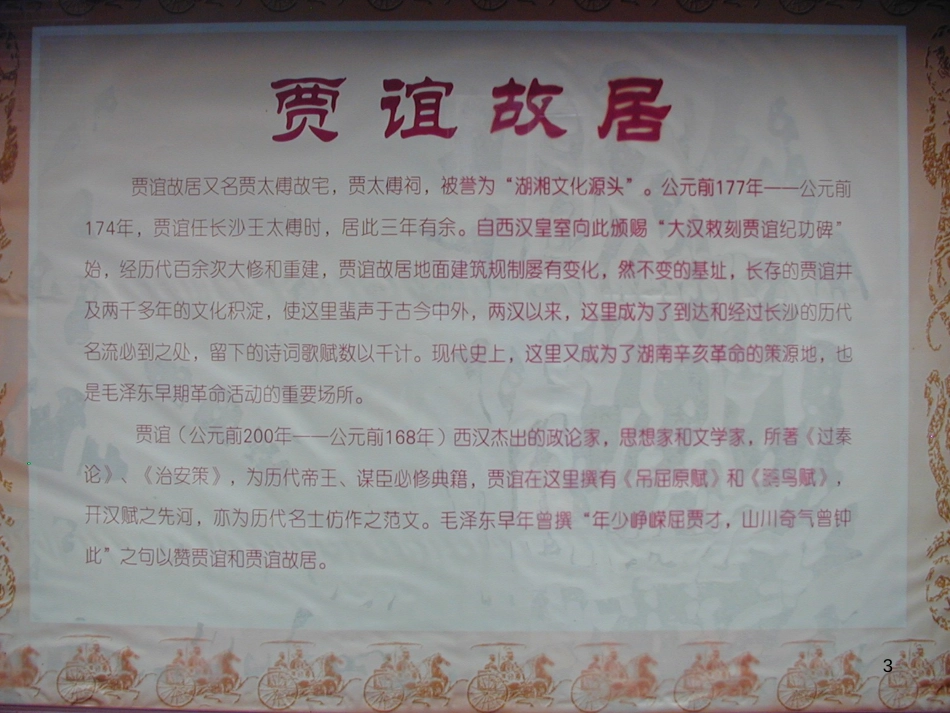 贾谊故居
贾谊故居又名贾太傅故宅，贾太傅祠，被誉为“湖湘文化源头”。公元前177年——公元前
174年，贾谊任长沙王太傅时，居此三年有余。自西汉皇室向此颁赐“大汉敕刻贾谊纪功碑”
始，经历代百余次大修和重建，贾谊故居地面建筑规制屡有变化，然不变的基址，长存的贾谊井
及两千多年的文化积淀，使这里蜚声于古今中外，两汉以来，这里成为了到达和经过长沙的历代
名流必到之处，留下的诗词歌赋数以千计。现代史上，这里又成为了湖南辛亥革命的策源地，也
是毛泽东早期革命活动的重要场所。
贾谊（公元前200年——公元前168年）西汉杰出的政论家，思想家和文学家，所著《过秦
论》、《治安策》，为历代帝王、谋臣必修典籍，贾谊在这里撰有《吊屈原赋》和《鸟赋》，
开汉赋之先河，亦为历代名士仿作之范文。毛泽东早年曾撰“年少峥嵘屈贾才，山川奇气曾钟
此”之句以赞贾谊和贾谊故居。
3